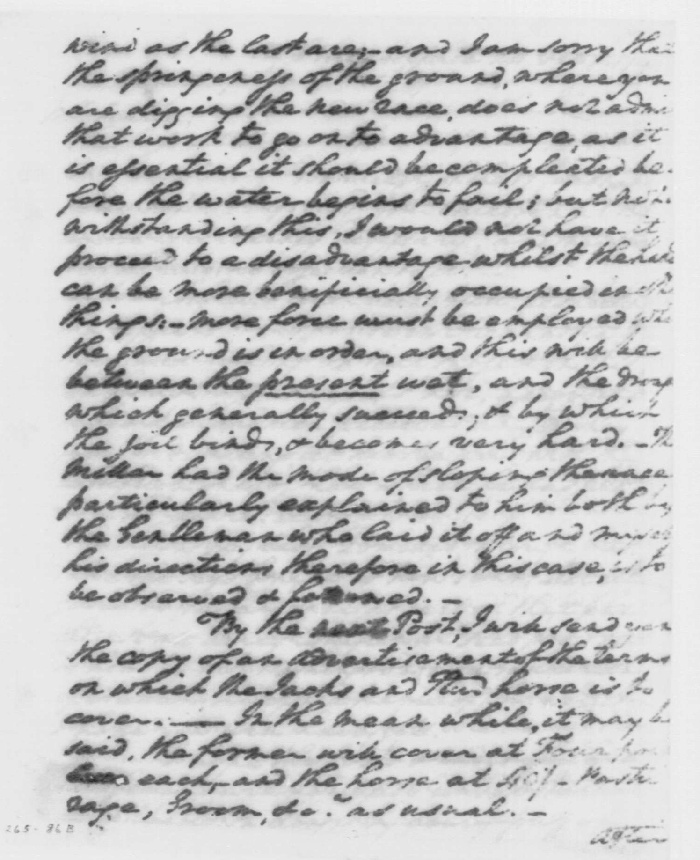 wind as the last are; – and I am sorry that
the springeness of the ground, where you
are digging the new race, does not adm
that work to go on to advantage, as it
is essential it should be compleated be-
fore the water begins to fail; but not-
withstanding this, I would not have it
proceed to a disadvantage whilst the hand
can be more benificially occupied in oth
things: – more force must be employed whe
the ground is in order, and this will be
between the present wet, and the droug
which generally succeeds; & by which
the soil binds, & becomes very hard. – Th
Miller had the mode of sloping the race
particularly explained to him both by
the Gentleman who laid it off and myself
his directions therefore in this case, is to
be observed & followed. –
By the next Post, I will send you
the copy of an advertisement of the terms
on which the Jacks and Stud horse is to
cover. — In the mean while, it may be
said, the former will cover at Four
each, and the horse at 40/– Pastu
rage, Groom, &c.a as usual. –
265 - 86B
After